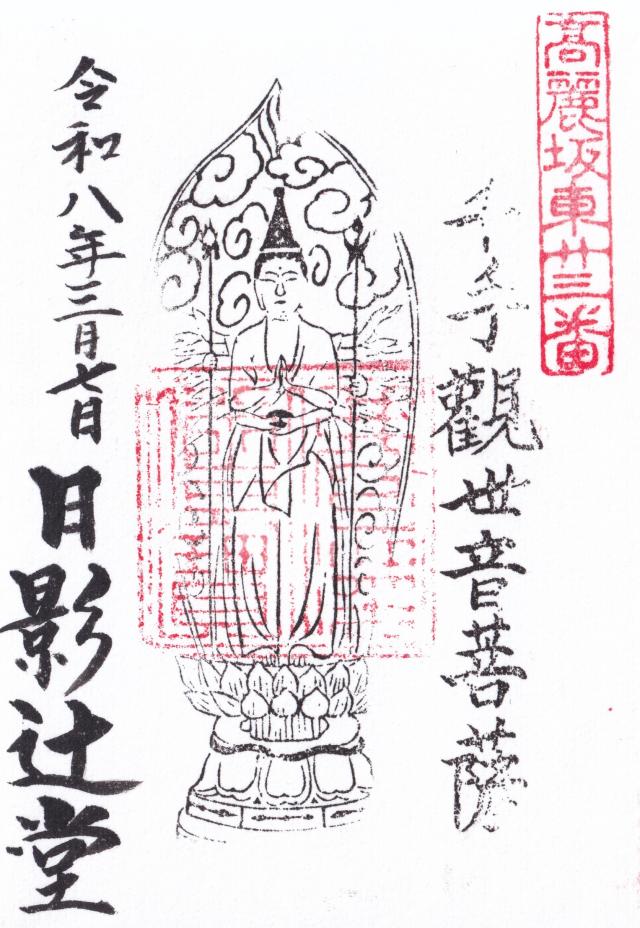 高麗坂東廿三番
千手觀世音菩薩
令和八年三月七日
日影辻堂